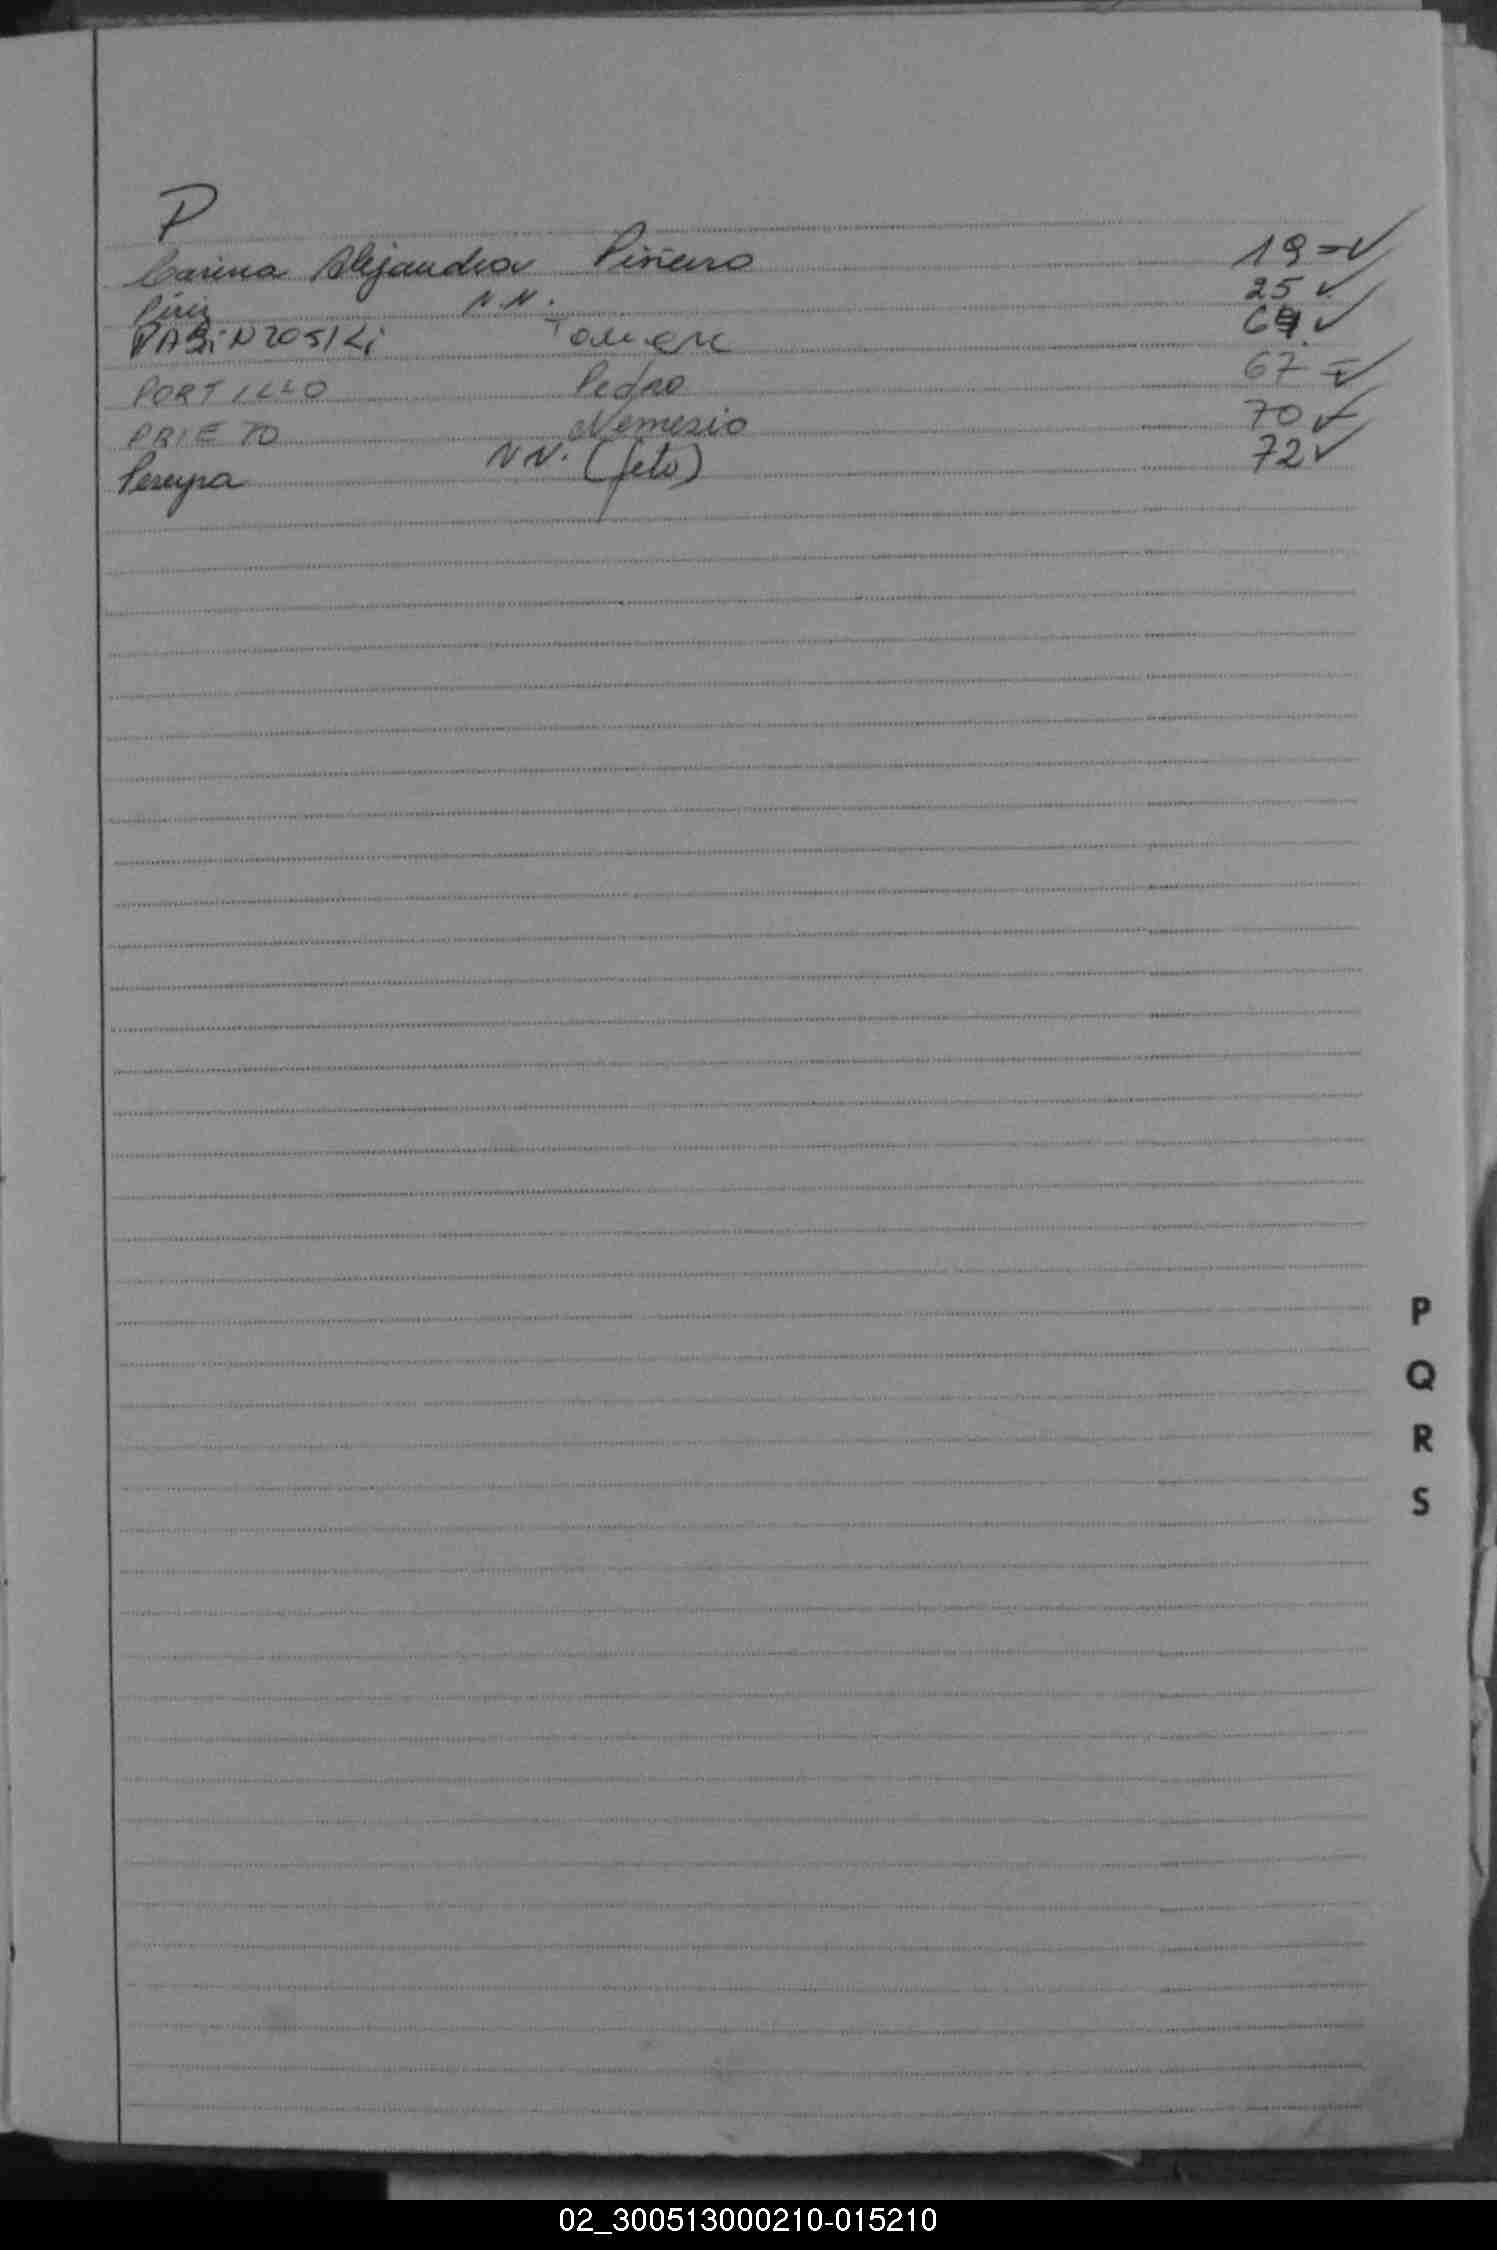 P
Carina Alejandra Piñeiro 19 = ✓
Píriz N.N. 25 ✓
Tomek ✓
PORTILLO Pedro 67 = ✓
PRIETO Nemesio 70 ✓
Pereyra N N. (feto) 72 ✓
P
Q
R
S
02_300513000210-015210